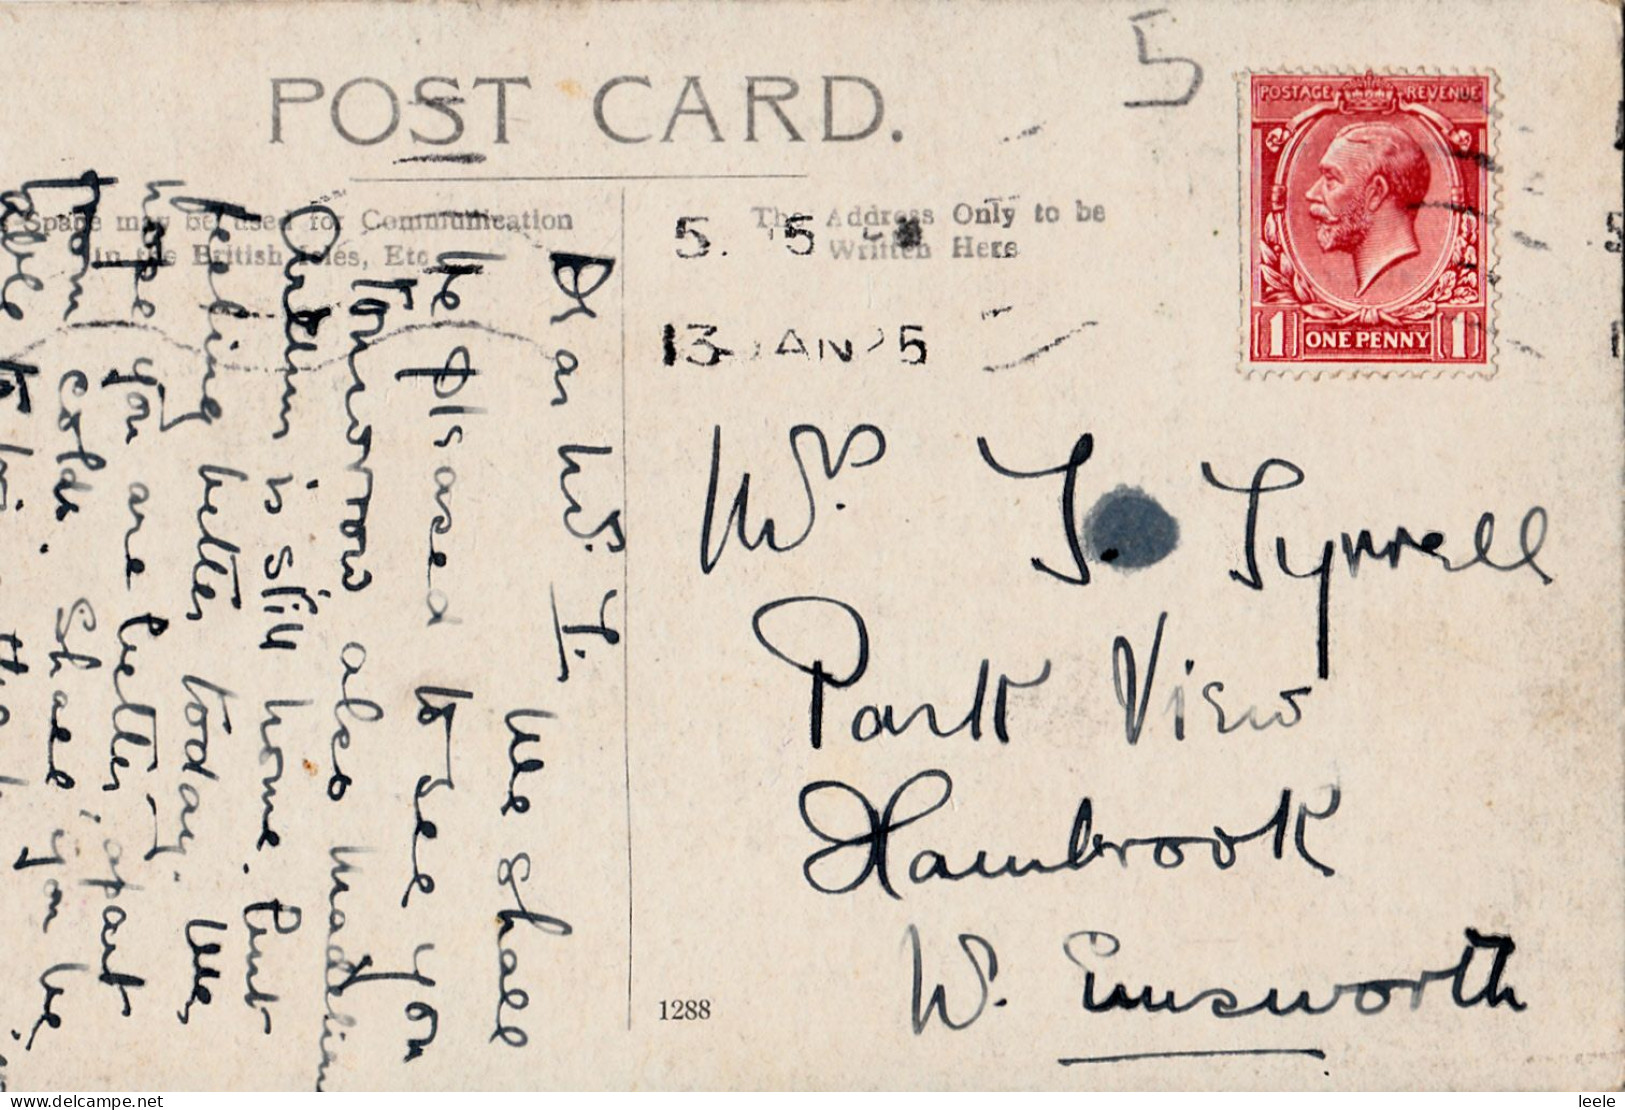 POST CARD.
5
POSTAGE REVENUE
1 ONE PENNY 1
Space may be used for Communication
in the British Isles, Etc.
The Address Only to be
Written Here
13 JAN 25
Dear Mrs. T. We shall
be pleased to see you
Tomorrow also Madeline
is still home. but
feeling better today. We
hope you are better, apart
from cold. Shall you be
able to
Mrs. T. Tyrrell
Park View
Hambrook
W. Emsworth
1288
delcampe.net
leele